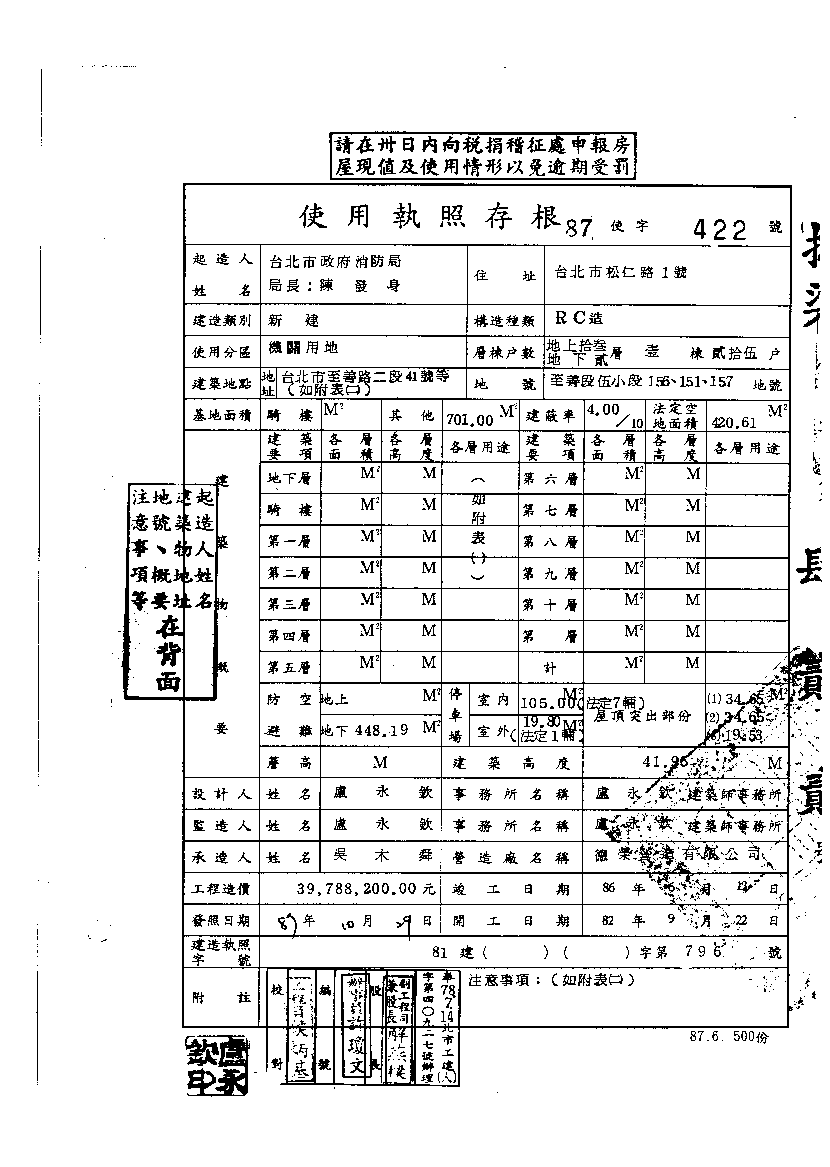 請在卅日內向稅捐稽征處申報房
屋現值及使用情形以免逾期受罰
使用執照存根 87 使字 422 號
起造人姓名 台北市政府消防局 局長：陳發身 住址 台北市松仁路1號
建造類別 新建 構造種類 RC造
使用分區 機關用地 層棟戶數 地上拾叁 地下貳 層 壹 棟 貳拾伍 戶
建築地點 地址 台北市至善路二段41號等（如附表㈡） 地號 至善段伍小段156、151、157 地號
基地面積 騎樓 M² 其他 701.00 M² 建蔽率 4.00/10 法定空地面積 420.61 M²
建築物概要
建築要項 各層面積 各層高度 各層用途 建築要項 各層面積 各層高度 各層用途
地下層 M² M 第六層 M² M
騎樓 M² M 第七層 M² M
第一層 M² M 第八層 M² M
第二層 M² M 第九層 M² M
第三層 M² M 第十層 M² M
第四層 M² M 第層 M² M
第五層 M² M 計 M² M
如附表
防空避難 地上 M² 停車場 室內 105.00 M² (法定7輛) 屋頂突出部份 (1)34.65 M²
地下 448.19 M² 室外 19.80 M² (法定1輛) (2)34.65
19.53
簷高 M 建築高度 M
設計人 姓名 盧永欽 事務所名稱 盧永欽 建築師事務所
監造人 姓名 盧永欽 事務所名稱 盧永欽 建築師事務所
承造人 姓名 吳木舜 營造廠名稱 有限公司
工程造價 39,788,200.00元 竣工日期 86年 月 日
發照日期 87年10月29日 開工日期 82年9月22日
建造執照字號 81建( )( )字第796號
附註 校對 編號 股長 注意事項：（如附表㈡）
起造人姓名
建築物地址
地號、概要
注意事項等
在背面
盧永欽印
87.6. 500份